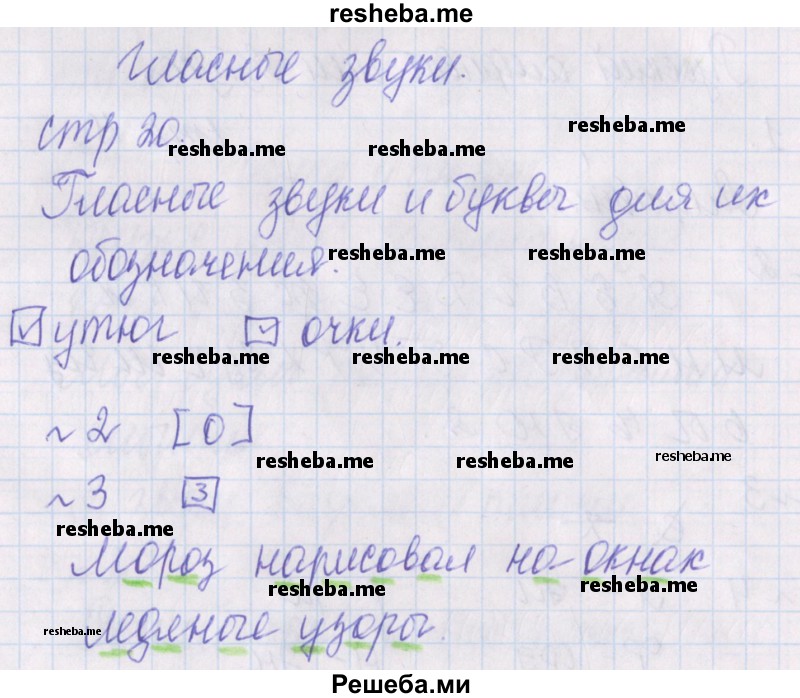 resheba.me
Гласные звуки.
стр 20.
resheba.me resheba.me resheba.me
Гласные звуки и буквы для их
обозначения.
resheba.me resheba.me
утюг очки.
resheba.me resheba.me resheba.me
~ 2 [О]
resheba.me resheba.me resheba.me
~ 3 3
resheba.me
Мороз нарисовал на окнах
resheba.me resheba.me
resheba.me
ледяные узоры.
Решеба.ми